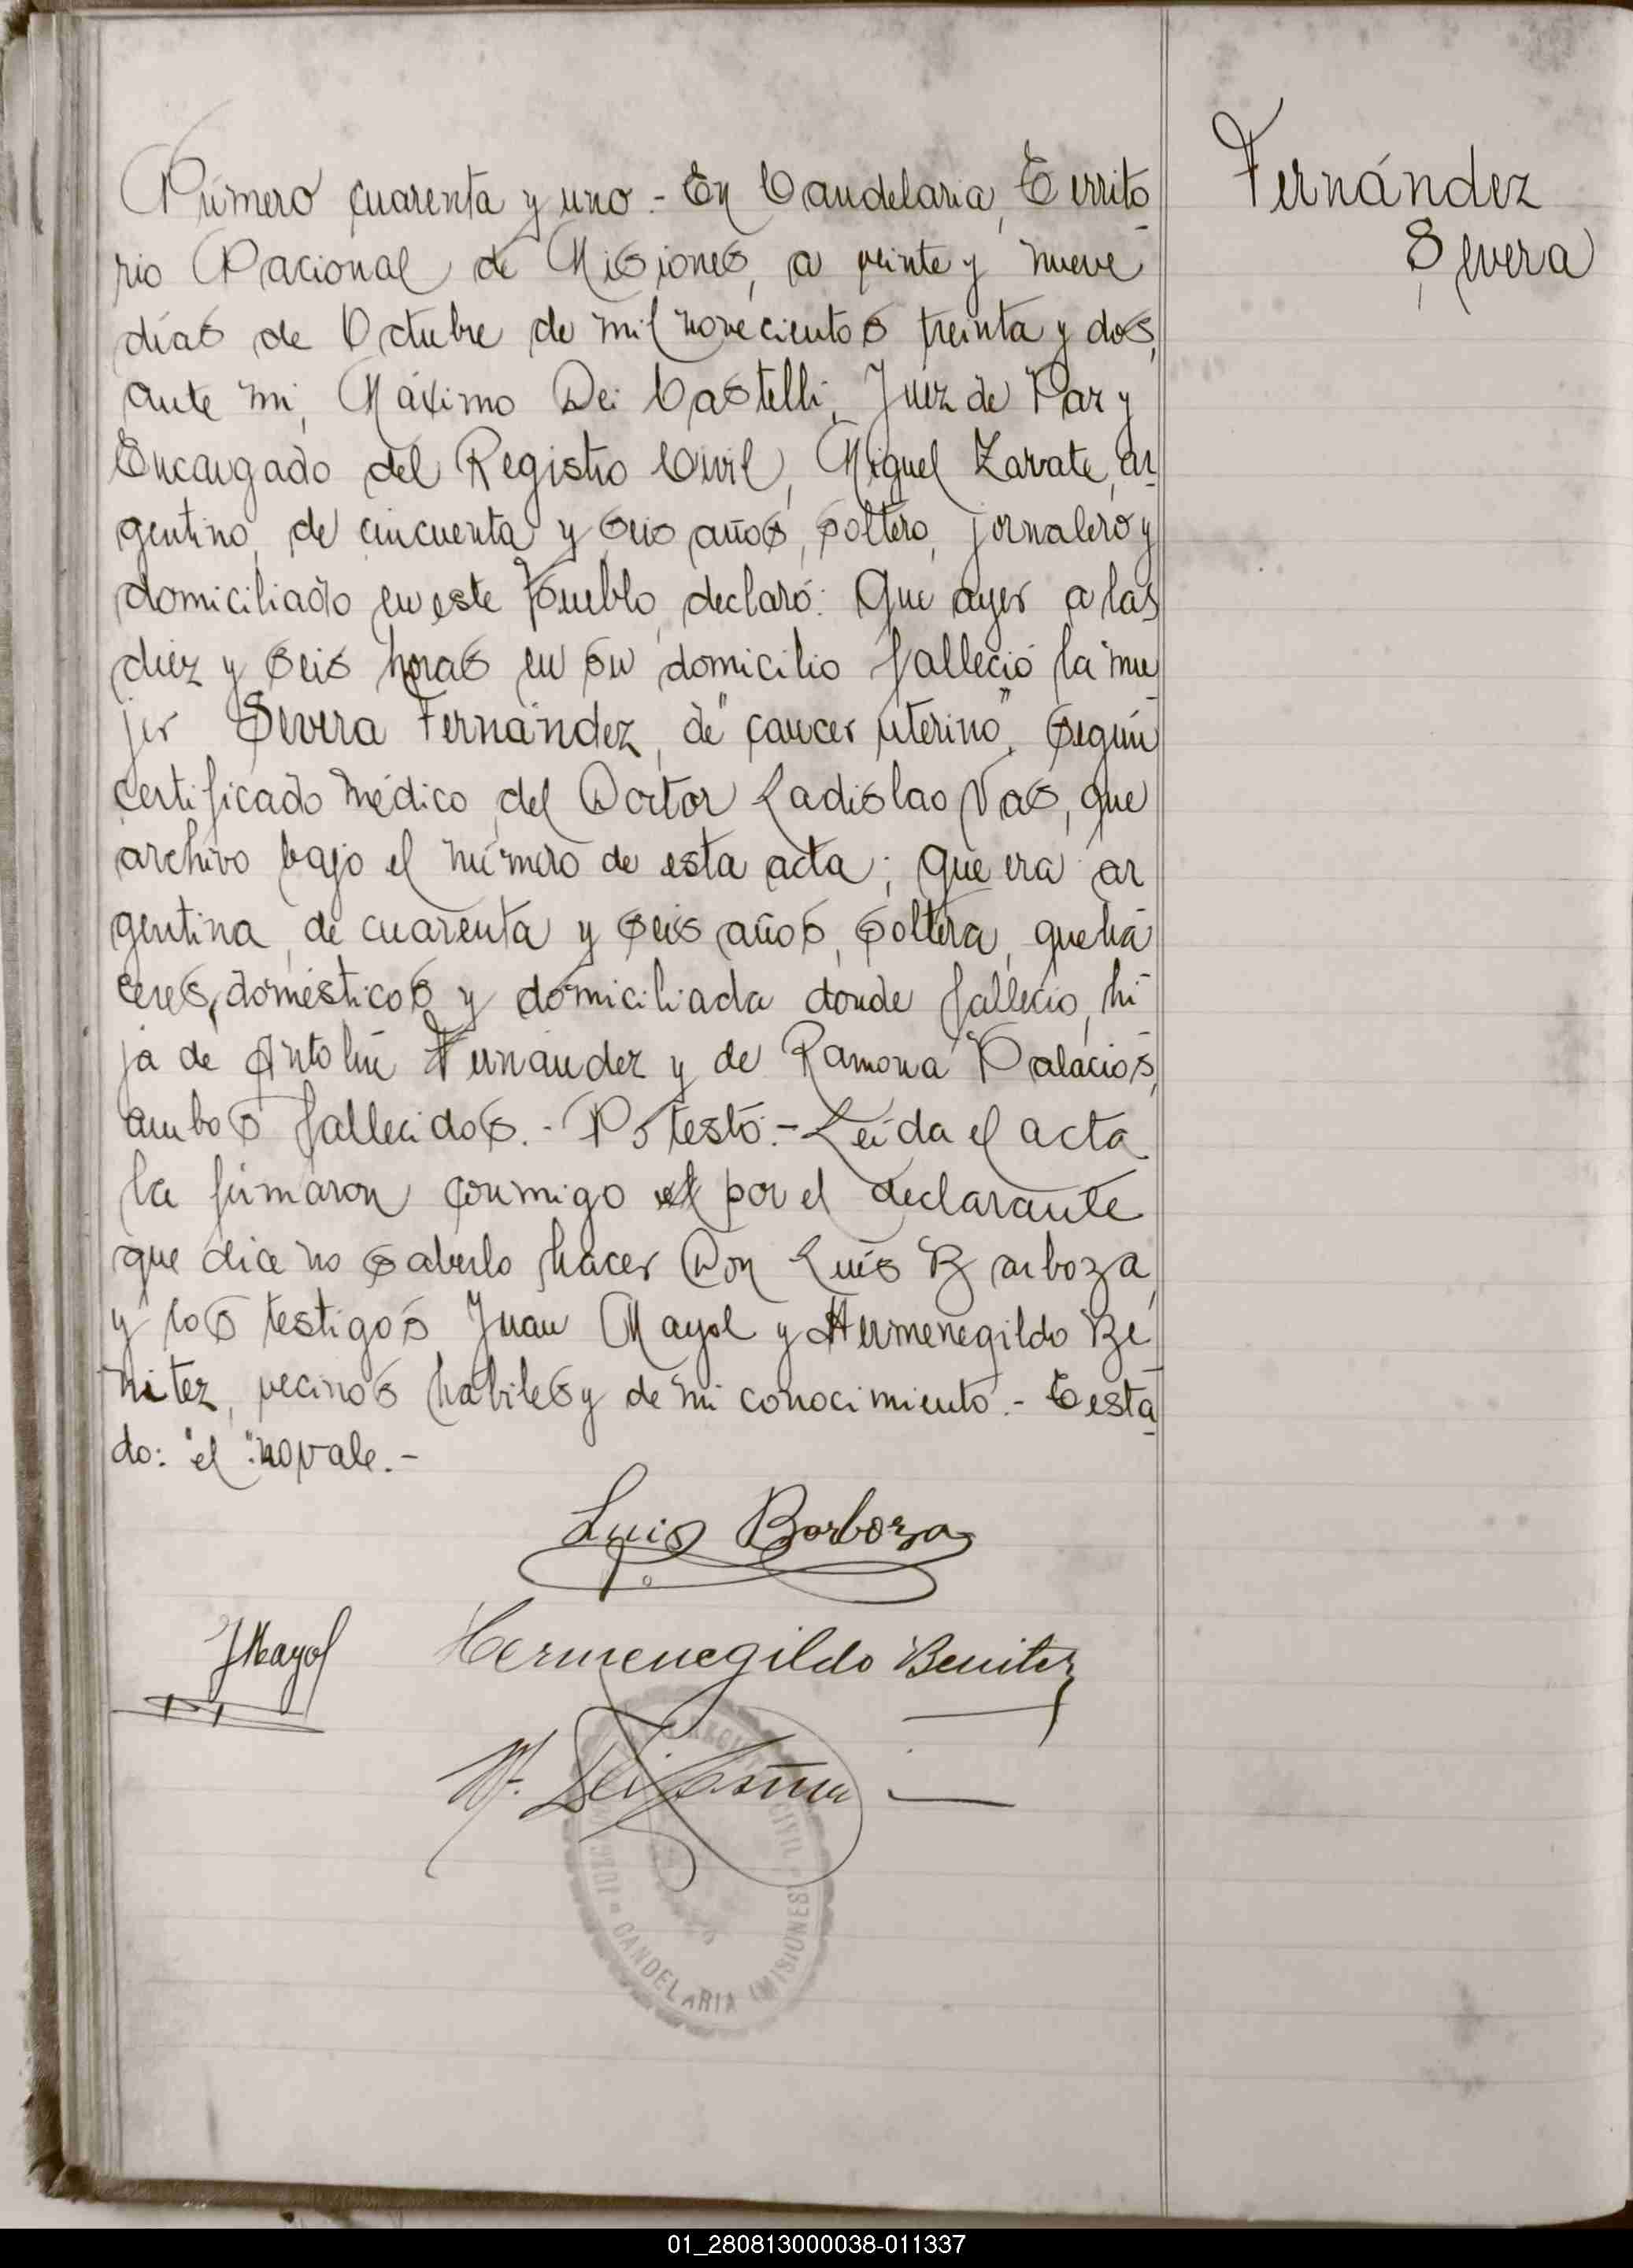 Número cuarenta y uno.- En Candelaria, Territo
rio Nacional de Misiones, a veinte y nueve
días de Octubre de mil novecientos treinta y dos,
ante mi, Máximo Dei Castelli, Juez de Paz y
Encargado del Registro Civil, Miguel Zarate, ar-
gentino, de cincuenta y seis años, soltero, jornalero y
domiciliado en este Pueblo, declaró: Que ayer a las
diez y seis horas en su domicilio falleció la mu-
jer Severa Fernández, de "cancer uterino", según
certificado médico del Doctor Ladislao Vas, que
archivo bajo el número de esta acta; que era ar
gentina, de cuarenta y seis años, soltera, queha-
ceres domésticos y domiciliada donde falleció, hi-
ja de Antolin Fernández y de Ramona Palacios,
ambos fallecidos.- No testó.- Leída el acta
la firmaron conmigo el por el declarante
que dice no saberlo hacer Don Luis Barboza,
y los testigos Juan Mayol y Hermenegildo Be-
nitez, vecinos habiles y de mi conocimiento.- Testa-
do: "el": no vale.-
Fernández
Severa
Luis Barboza
JMayol
Hermenegildo Benitez
M. Dei Castelli
CIVIL
CANDELARIA (MISIONES)
01_280813000038-011337